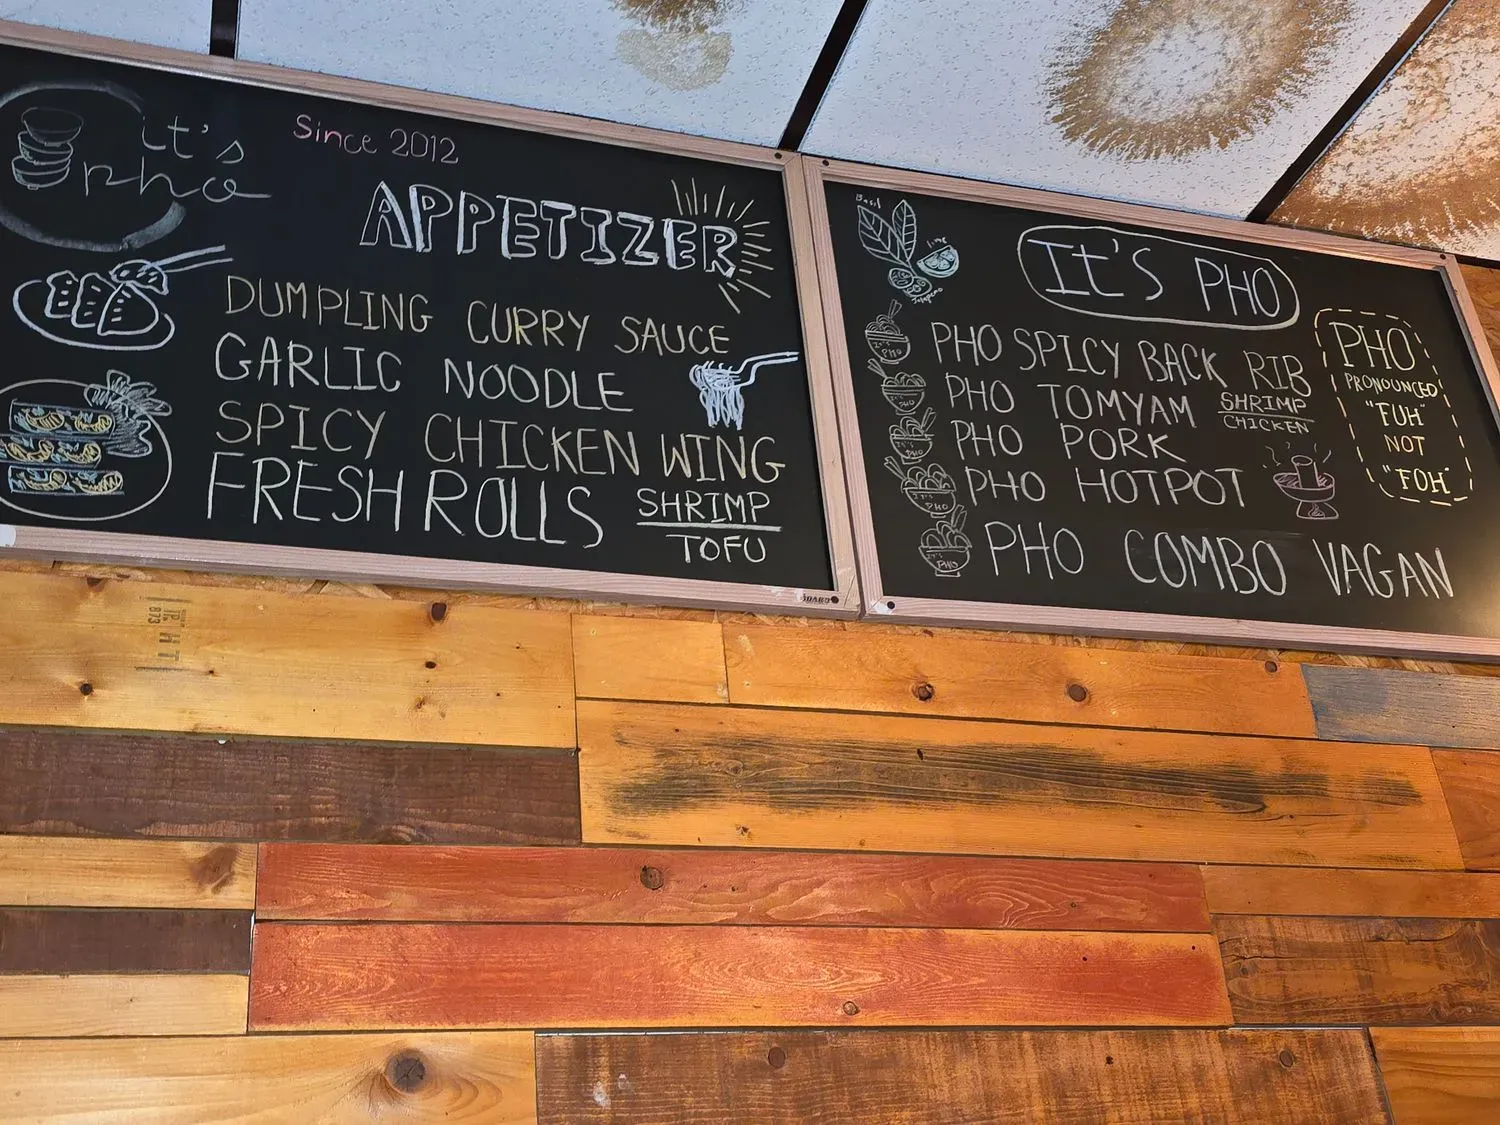 it's
pho
Since 2012
APPETIZER
DUMPLING CURRY SAUCE
GARLIC NOODLE
SPICY CHICKEN WING
FRESH ROLLS SHRIMP
TOFU
Basil
lime
Jalapeno
IT'S PHO
PHO SPICY BACK RIB
PHO TOMYAM SHRIMP
CHICKEN
PHO PORK
PHO HOTPOT
PHO COMBO VAGAN
PHO
PRONOUNCED
"FUH"
NOT
"FOH"
IT'S
PHO
PHO
PHO
IT'S
PHO
IT'S
PHO